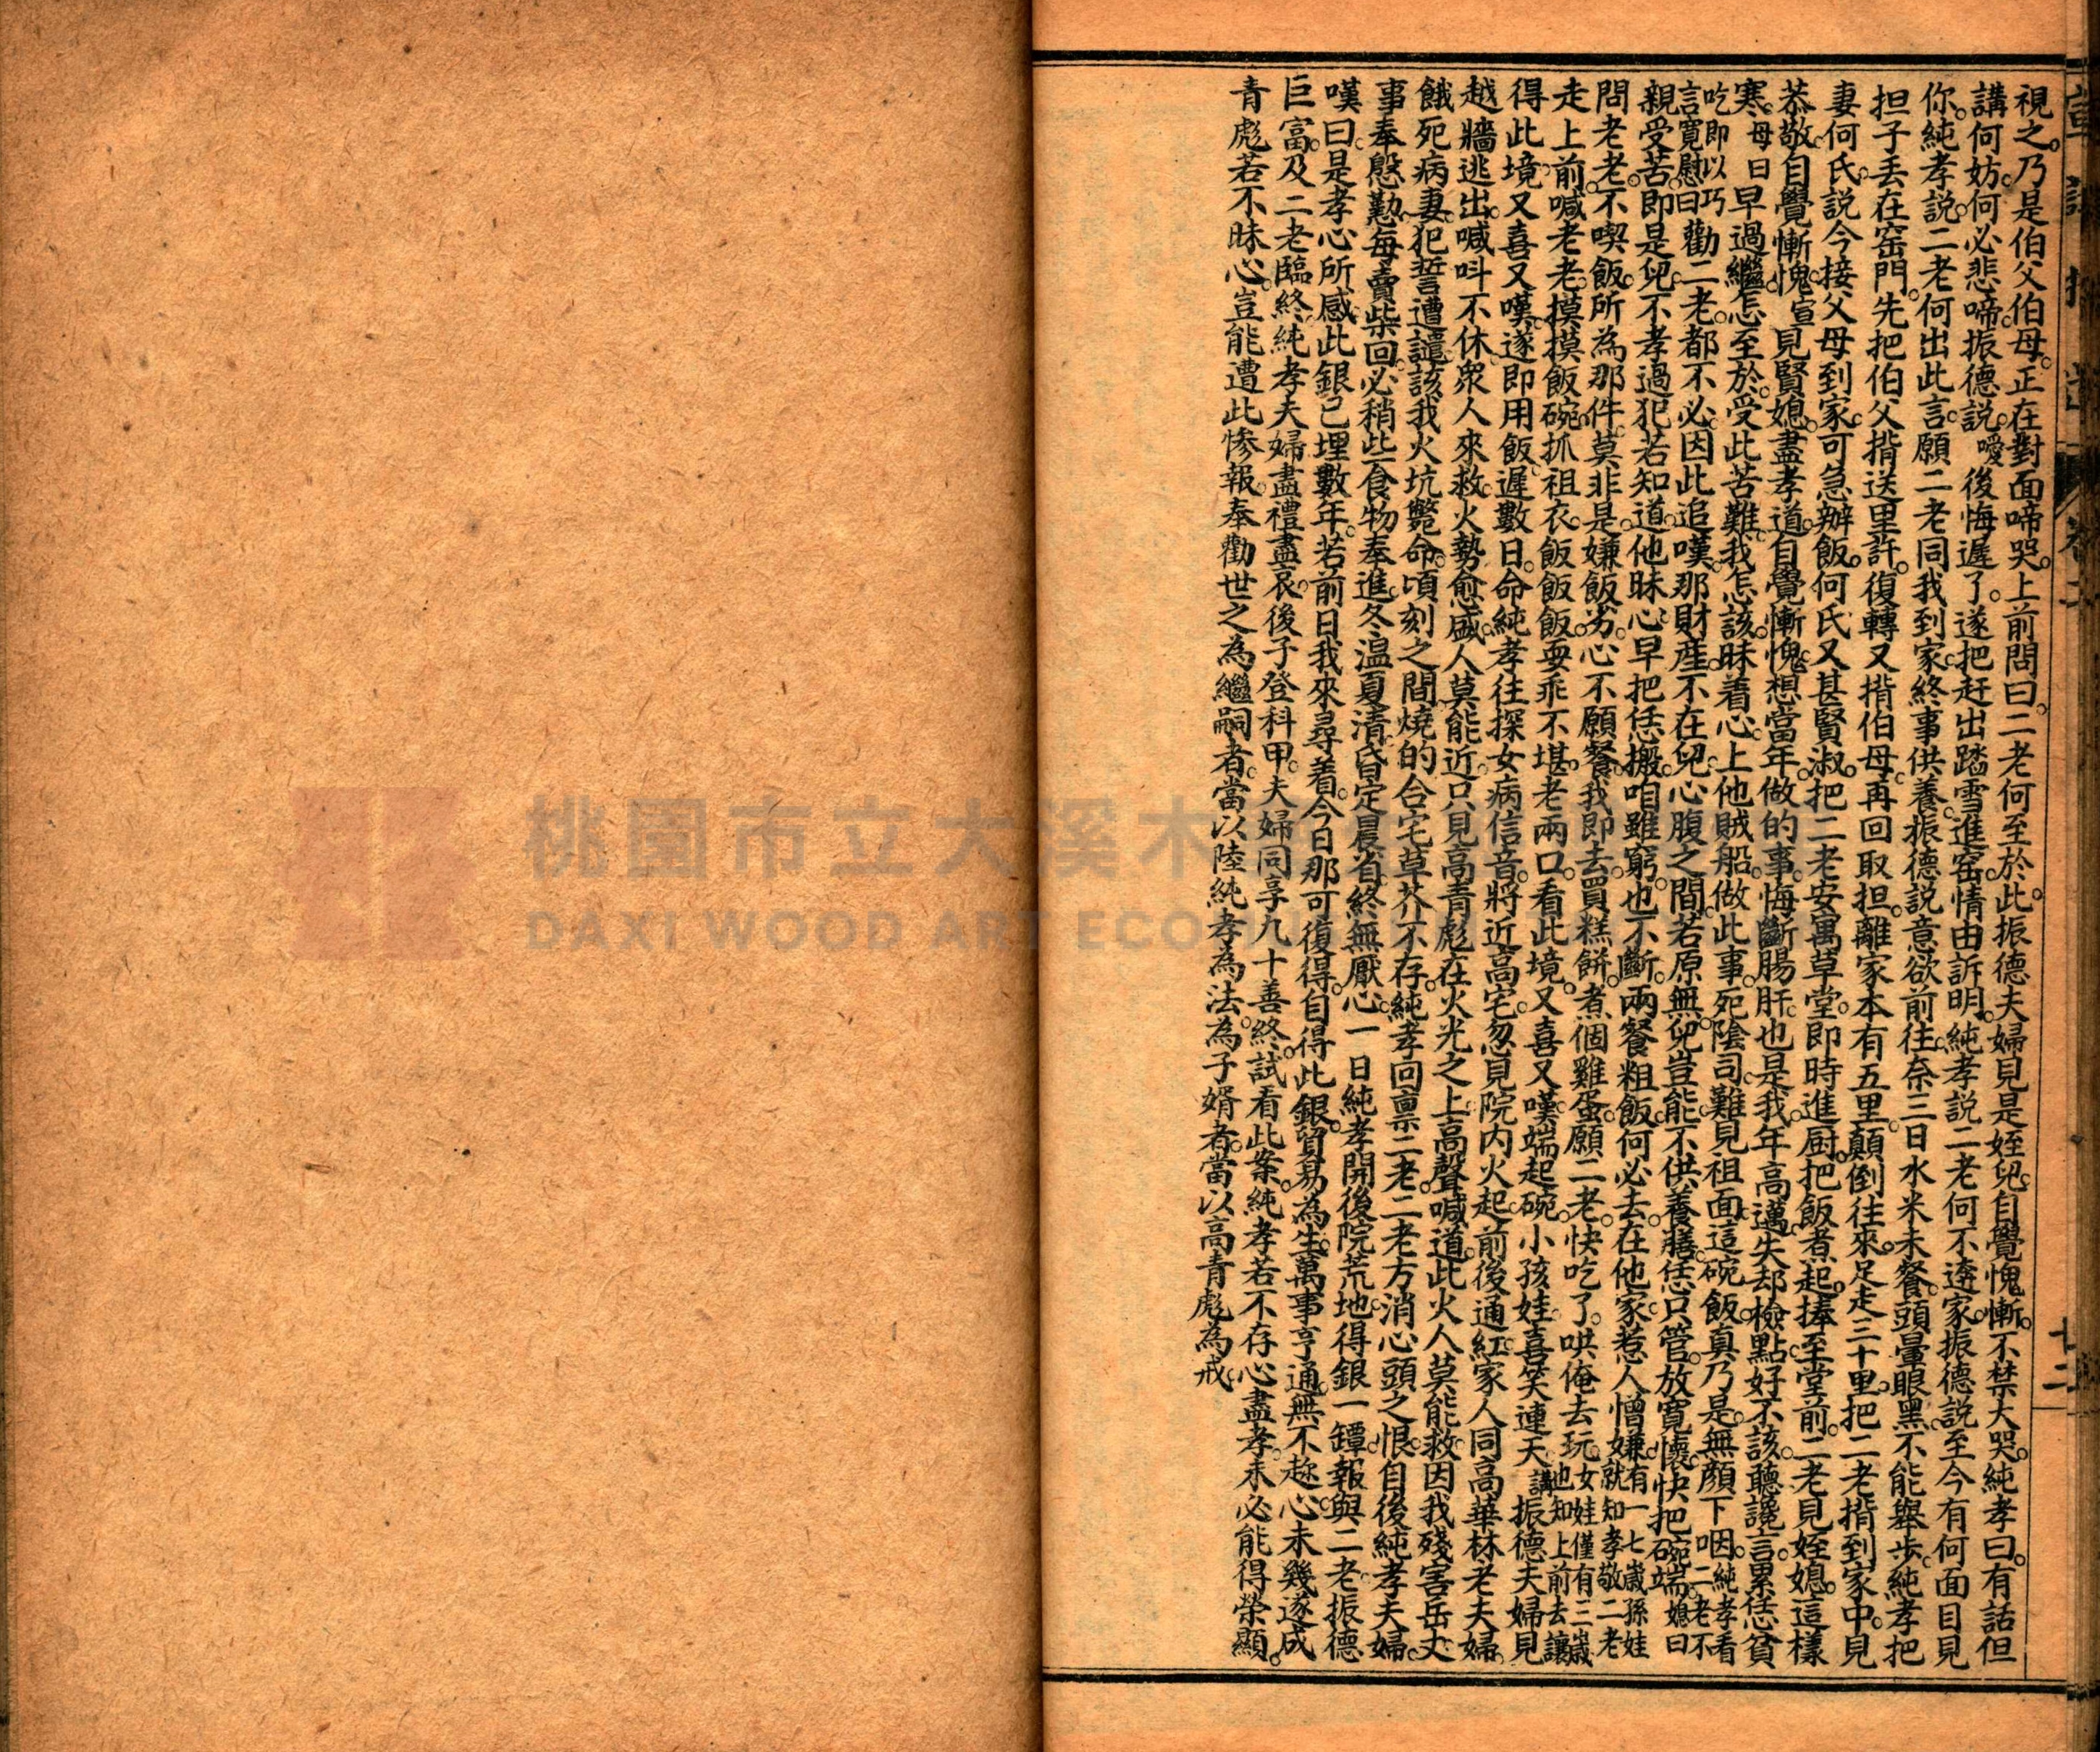 視之。乃是伯父伯母。正在對面啼哭。上前問曰。二老何至於此。振德夫婦見是姪兒。自覺愧慚。不禁大哭。純孝曰。有話但
講何妨。何必悲啼。振德說。噯 後悔遲了。遂把赶出踏雪進窑情由訴明。純孝說二老何不逩家。振德說至今有何面目見
你。純孝說。二老何出此言。願二老同我到家。終事供養。振德說意欲前往。奈三日水米未餐。頭暈眼黑。不能舉步。純孝把
担子丢在窑門。先把伯父揹送里許。復轉又揹伯母。再回取担。離家本有五里。顛倒往來。足走三十里。把二老揹到家中。見
妻何氏。說今接父母到家。可急辦飯。何氏又甚賢淑。把二老安寓草堂。即時進厨。把飯煮起。捧至堂前。二老見姪媳。這樣
恭敬。自覺慚愧。宣 見賢媳。盡孝道。自覺慚愧。想當年。做的事。悔斷腸肝。也是我。年高邁。失却檢點。好不該。聽讒言。累恁貧
寒。母曰 早過繼。怎至於。受此苦難。我怎該。昧着心。上他賊船。做此事。死陰司。難見祖面。這碗飯。真乃是。無顏下咽。純孝看二老不
吃即以巧言寬慰曰 勸二老。都不必。因此追嘆。那財產。不在兒。心腹之間。若原無。兒豈能。不供養膳。恁只管。放寬懷。快把碗端。媳曰
親受苦。即是兒。不孝過犯。若知道。他昧心。早把恁搬。咱雖窮。也不斷。兩餐粗飯。何必去。在他家。惹人憎嫌。有一七歲孫娃女就知孝敬二老
問老老。不喫飯。所為那件。莫非是。嫌飯劣。心不願餐。我即去。買糕餅。煮個雞蛋。願二老。快吃了。哄俺去玩。女娃僅有三歲也知上前去讓
走上前。喊老老。摸摸飯碗。抓祖衣。飯飯飯。耍乖不堪。老兩口。看此境。又喜又嘆。端起碗。小孩娃。喜笑連天 講 振德夫婦見
得此境。又喜又嘆。遂即用飯。遲數日。命純孝往探女病信音。將近高宅。忽見院内火起。前後通紅。家人同高華林老夫婦。
越牆逃出。喊呌不休。衆人來救。火勢愈盛。人莫能近。只見高青彪在火光之上。高聲喊道。此火人莫能救。因我殘害岳丈
餓死病妻。犯誓遭譴。該我火坑斃命。頃刻之間。燒的合宅草芥不存。純孝回禀二老。二老方消心頭之恨。自後純孝夫婦。
事奉慇懃。每賣柴回。必稍些食物奉進。冬温夏清。昏定晨省。終無厭心。一日純孝開後院荒地。得銀一罈。報與二老。振德
嘆曰。是孝心所感。此銀已埋數年。若前日我來尋着。今日那可復得。自得此銀。貿易為生。萬事亨通。無不趂心。未幾遂成
巨富。及二老臨終。純孝夫婦盡禮盡哀。後子登科甲。夫婦同享九十善終。試看此案。純孝若不存心盡孝。未必能得榮顯。
青彪若不昧心。豈能遭此慘報。奉勸世之為繼嗣者。當以陸純孝為法。為子婿者。當以高青彪為戒。
卷二
七二
桃園市立大溪木
DAXI WOOD ART ECOMUSEUM